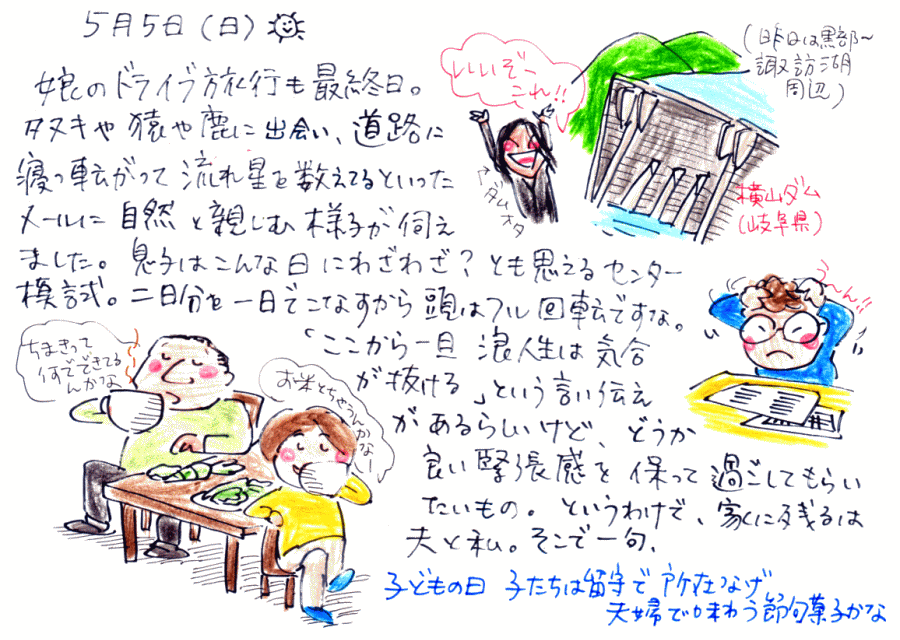 5月5日（日）
娘のドライブ旅行も最終日。
タヌキや猿や鹿に出会い、道路に
寝っ転がって流れ星を数えてるといった
メールに自然と親しむ様子が伺え
ました。息子はこんな日にわざわざ？とも思えるセンター
模試。二日分を一日でこなすから頭はフル回転ですな。
「ここから一旦浪人生は気合
が抜ける」という言い伝え
があるらしいけど、どうか
良い緊張感を保って過ごしてもらい
たいもの。というわけで、家に残るは
夫と私。そこで一句、
子どもの日 子たちは留守で所在なげ
夫婦で味わう節句菓子かな
いいぞー
これ!!
↑ダムオタ
（昨日は黒部〜
諏訪湖
周辺）
横山ダム
（岐阜県）
う〜ん!!
ちまきって
何でできてる
んかな
お米とちゃうんかなー